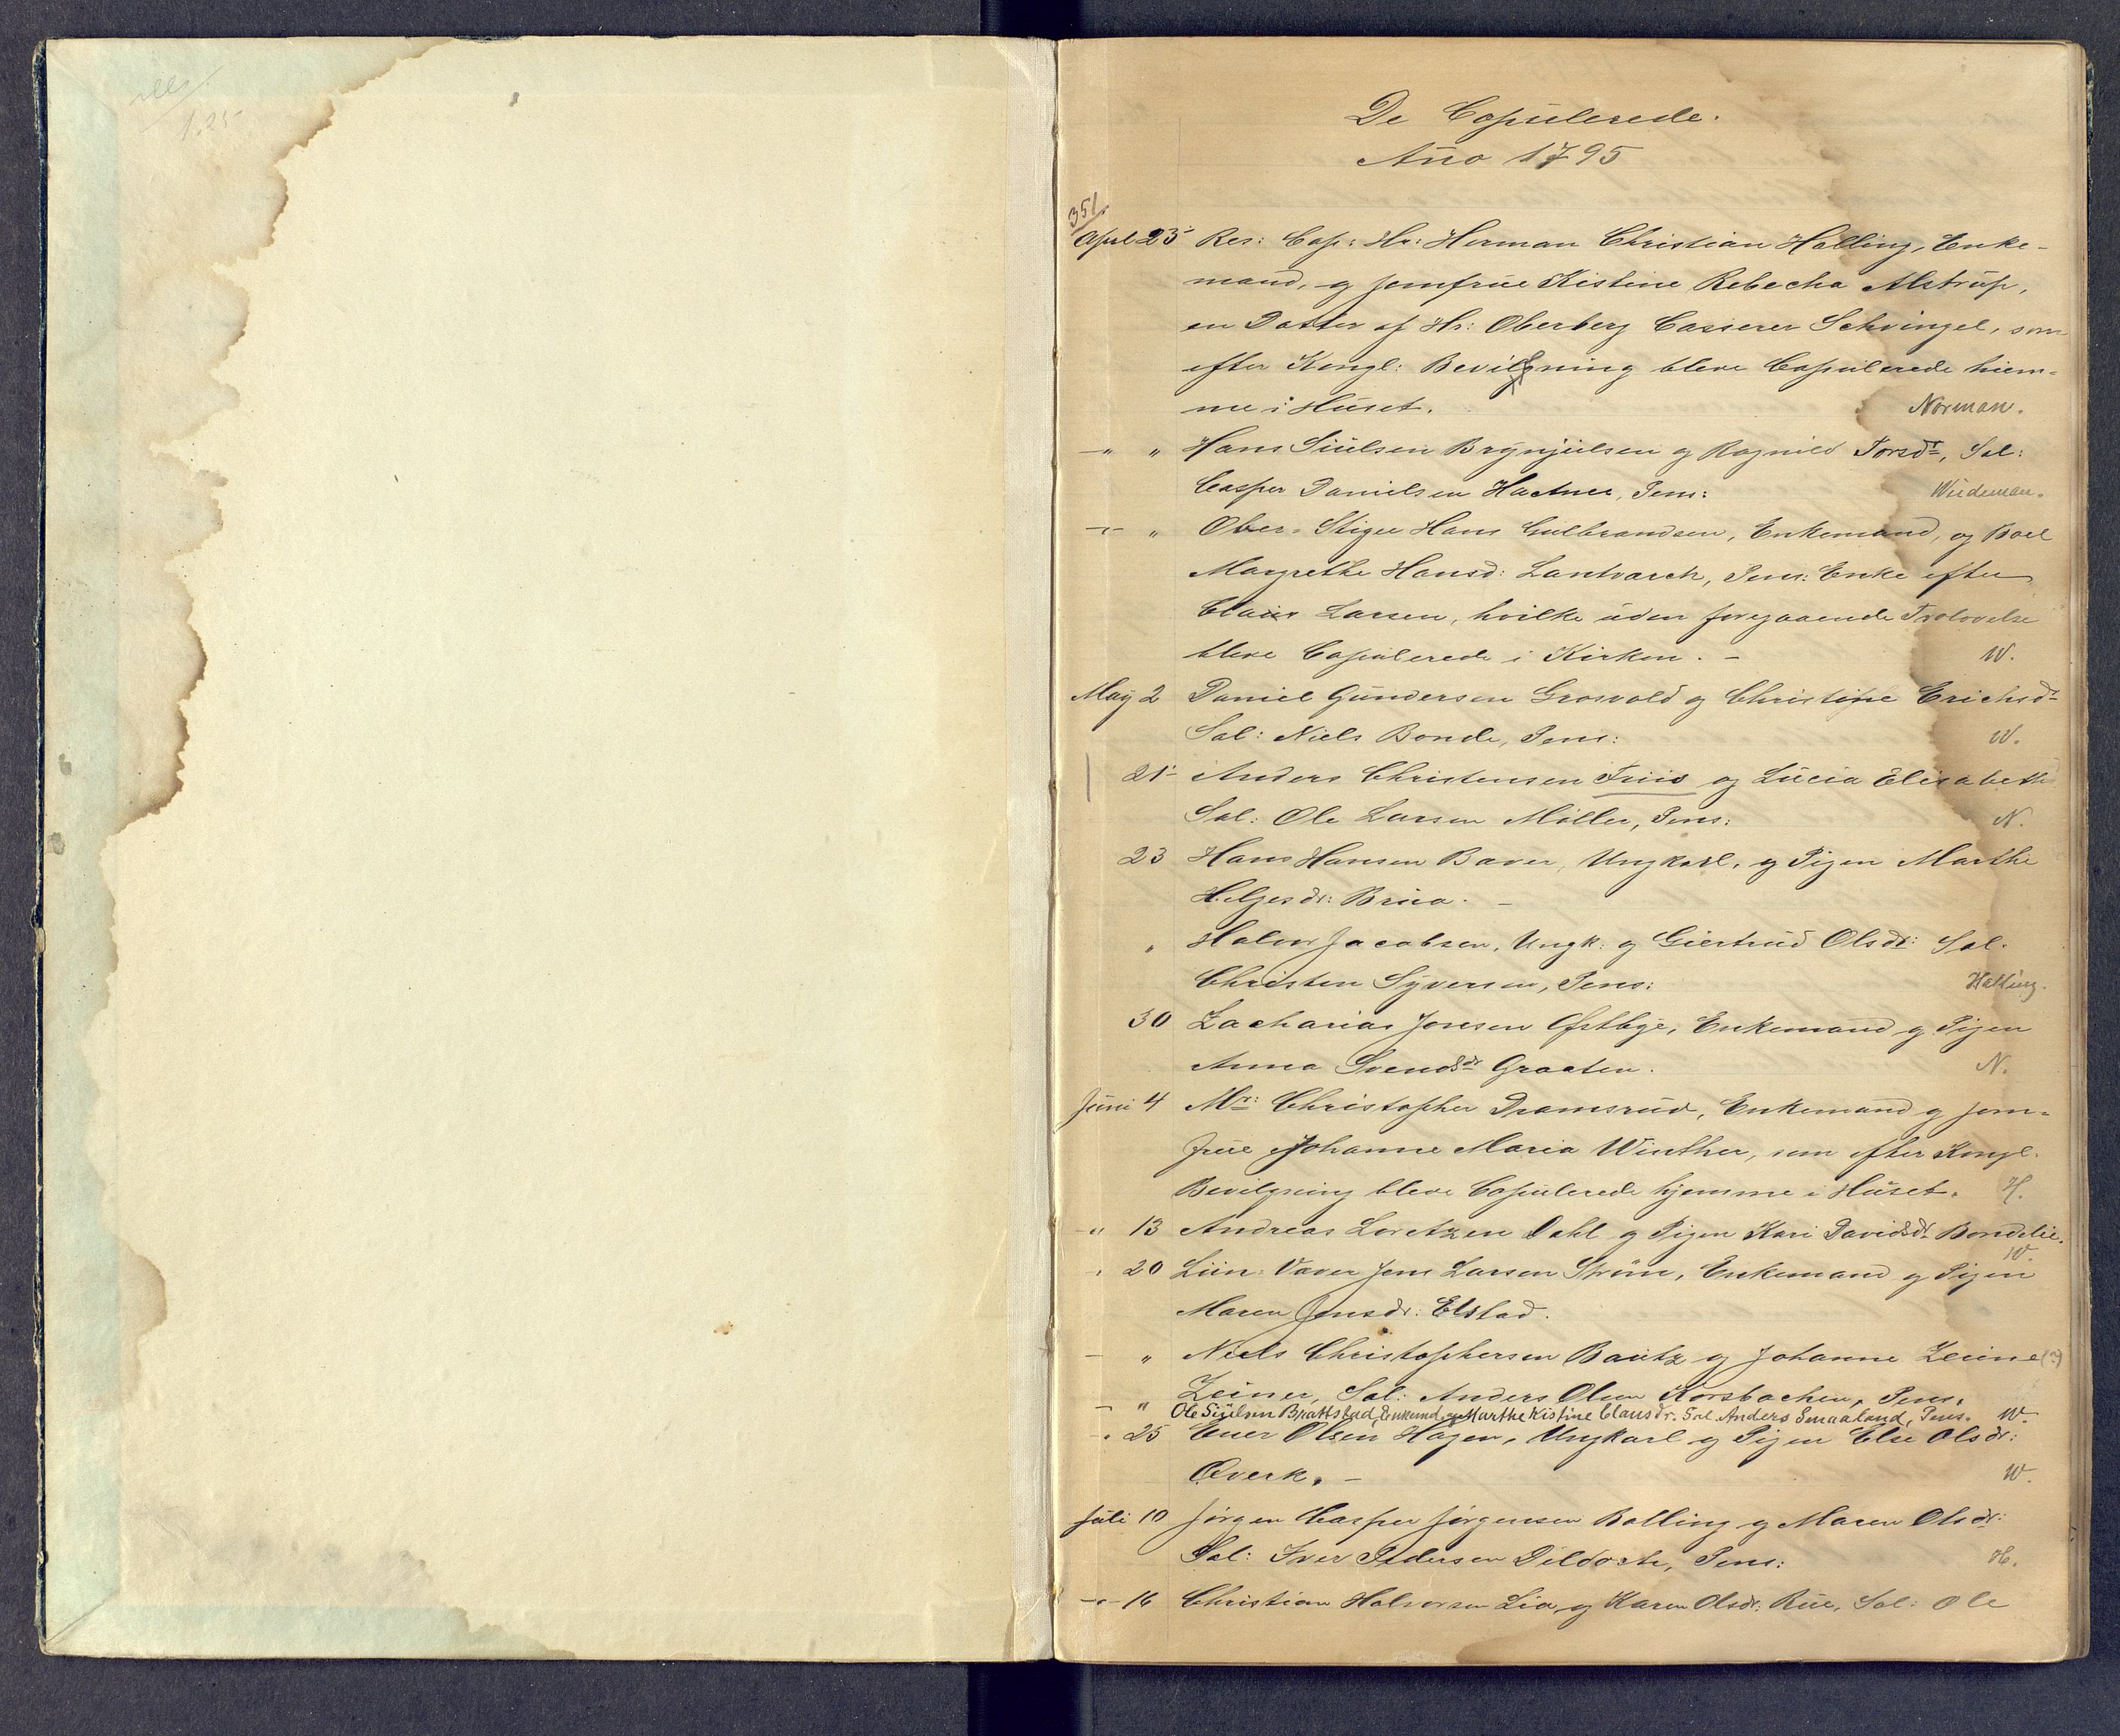 1.25
De Copulerede.
Año 1795
351.
April 25 Res: Cap: Hr: Herman Christian Halling, Enke-
mand, og Jomfrue Kistine Rebecha Alstrup,
en Datter af Hr: Oberberg Casserer Schvingel, som
efter Kongl: Bevilgning bleve Copulerede hiem-
me i Huset. Norman.
-"- " Hans Siulsen Brynjulsen og Ragnild Torsdr, Sal:
Casper Danielsen Hactner, Pens: Wiedeman.
-"- " Ober-Stiger Hans Gulbrandsen, Enkemand, og Boel
Margrethe Hansd: Lantvarch, Pens: Enke efter
Claus Larsen, hvilke uden foregaaende Trolovelse
bleve Copulerede i Kirken. - W.
May 2 Daniel Gundersen Grosvold og Christine Erichsdr
Sal: Niels Bonde, Pens: W.
21 Anders Christensen Friis og Lucia Elisabeth
Sal: Ole Larsen Møller, Pens: N.
23 Hans Hansen Baver, Ungkarl, og Pigen Marthe
Helgesdr: Brua. -
" Halvor Jacobsen, Ungk: og Giertrud Olsdr: Sal.
Christen Syversen, Pens: Halling.
30 Zacharias Jonsen Østbye, Enkemand og Pigen
Anna Svendsdr Graaten. N.
Juni 4 Mr: Christopher Dramsrud, Enkemand og Jom-
frue Johanne Maria Winther, som efter Kongl.
Bevilgning bleve Copulerede hjemme i Huset. H.
" 13 Andreas Loretzen Dahl og Pigen Kari Davidsdr Bondelie.
W.
" 20 Liin-Væver Jens Larsen Strøm, Enkemand og Pigen
Maren Jensdr: Elstad.
- " Niels Christophersen Bautz og Johanne Zeine(?)
Zeiner, Sal: Anders Olsen Korsbachen, Pens.
- " Ole Siülsen Brattstad, Enkemd, og Marthe Kistine Clausdr. Sal. Anders Smaaland, Pens. W.
" 25 Ener Olsen Hagen, Ungkarl og Pigen Else Olsdr:
Qverk. - W.
Juli 10 Jørgen Casper Jørgensen Balling og Maren Olsdr:
Sal: Iver Pedersen Dildoch, Pens: H.
-"- 16 Christian Halvorsen Lia og Karen Olsdr: Rue, Sal: Ole